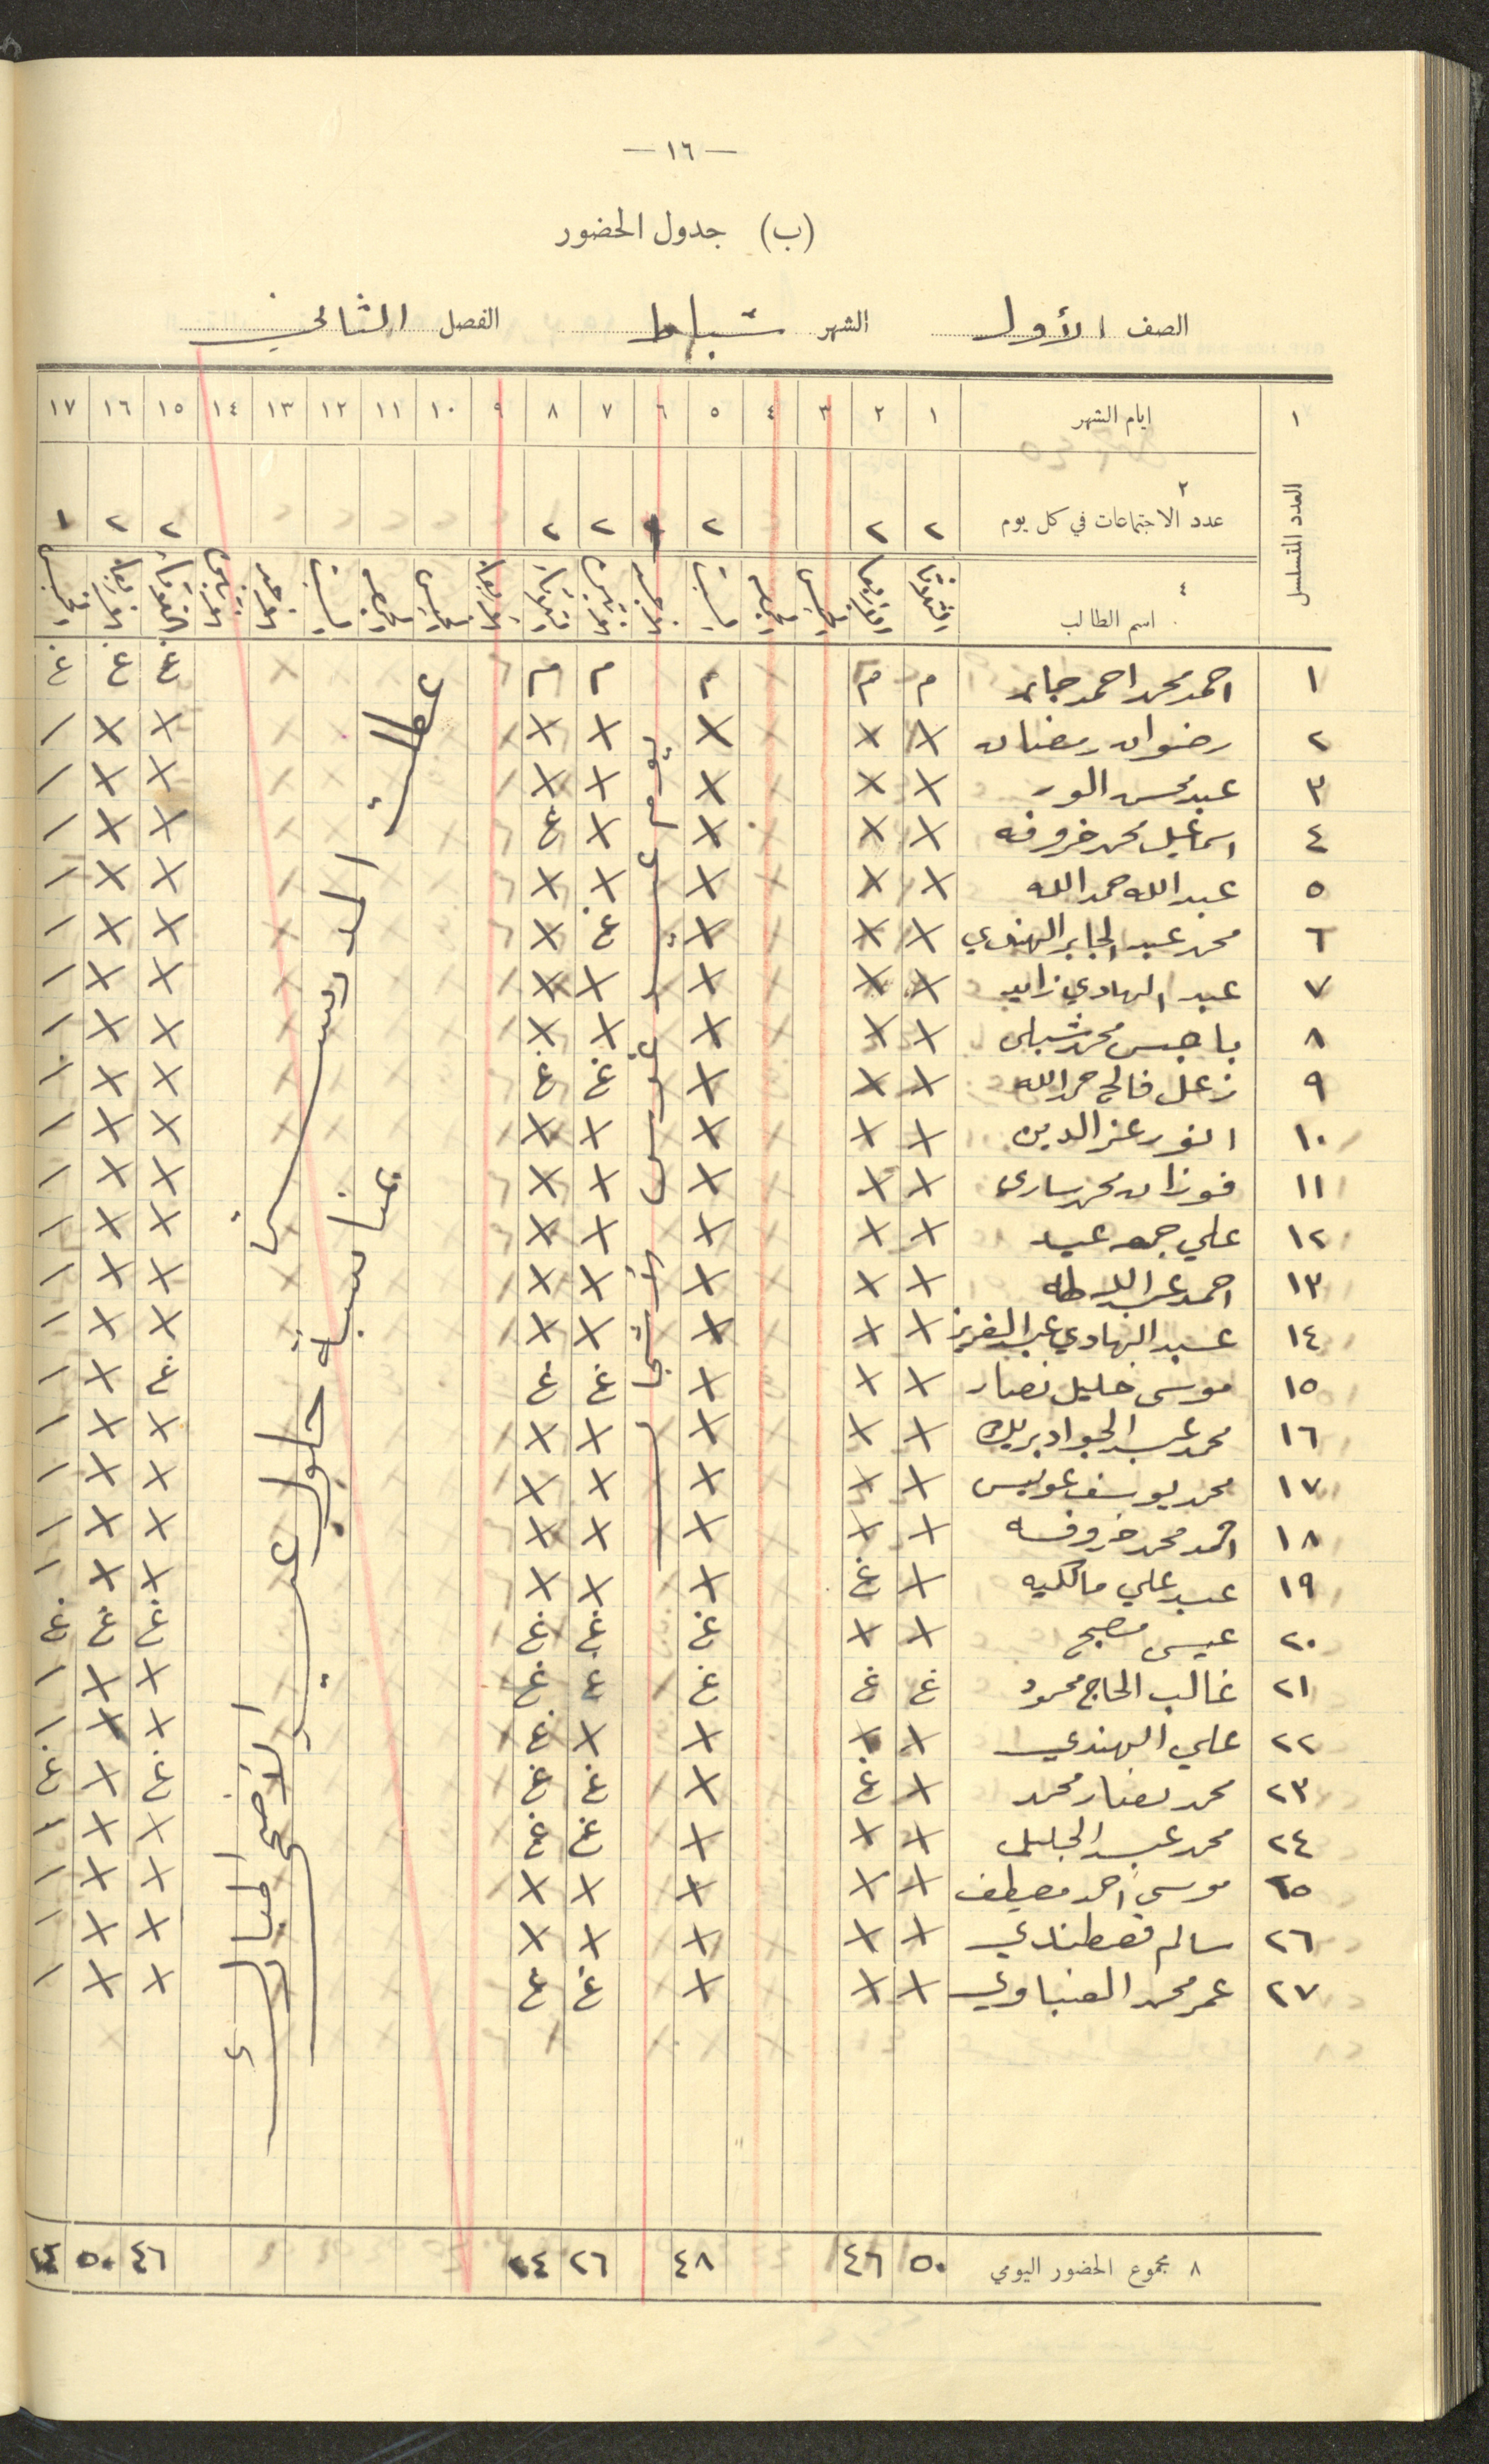 — ١٦ —
(ب) جدول الحضور
الصف الأول الشهر شباط الفصل الثاني
١ ايام الشهر ١ ٢ ٣ ٤ ٥ ٦ ٧ ٨ ٩ ١٠ ١١ ١٢ ١٣ ١٤ ١٥ ١٦ ١٧
العدد المتسلسل
٢ عدد الاجتماعات في كل يوم ٢ ٢ ٢ ٢ ٢ ٢ ٢ ١
٤ اسم الطالب
١ احمد محمد احمد جابر م م م م م غ غ غ
٢ رضوان رمضان X X X X X X X /
٣ عبد محسن X X X X X X X /
٤ اسماعيل محمد خروفه X X X X غ X X /
٥ عبد الله حمد الله X X X X X X X /
٦ محمد عبد الجابر الهندي X X X غ X X X /
٧ عبد الهادي زايد X X X X X X X /
٨ باجس محمد شبلي X X X X X X X /
٩ زعل فالح حمد الله X X X غ غ X X /
١٠ انور عز الدين X X X X X X X /
١١ فوزان محمد ساري X X X X X X X /
١٢ علي جمعه عيد X X X X X X X /
١٣ احمد عبد الله طه X X X X X X X /
١٤ عبد الهادي عبد العزيز X X X X X X X /
١٥ موسى خليل نصار X X X غ غ غ X /
١٦ محمد عبد الجواد بريك X X X X X X X /
١٧ محمد يوسف عويس X X X X X X X /
١٨ احمد محمد خروفه X X X X X X X /
١٩ عبد علي مالكيه X غ X X X X X /
٢٠ عيسى مصبح X X غ غ غ غ غ غ
٢١ غالب الحاج محمود غ غ غ غ غ X X /
٢٢ علي الهندي X X X X غ X X /
٢٣ محمد نصار محمد X غ X غ غ غ X غ
٢٤ محمد عبد الجليل X X X غ غ X X /
٢٥ موسى احمد مصطفى X X X X X X X /
٢٦ سالم قصطندي X X X X X X X /
٢٧ عمر محمد العنباوي X X X غ غ X X /
يوم عيد غرس الأشجار
عطلة المدرسة
بمناسبة حلول عيد الأضحى المبارك
٨ مجموع الحضور اليومي ٥٠ ٤٦ ٤٨ ٢٦ ٤٦ ٥٠